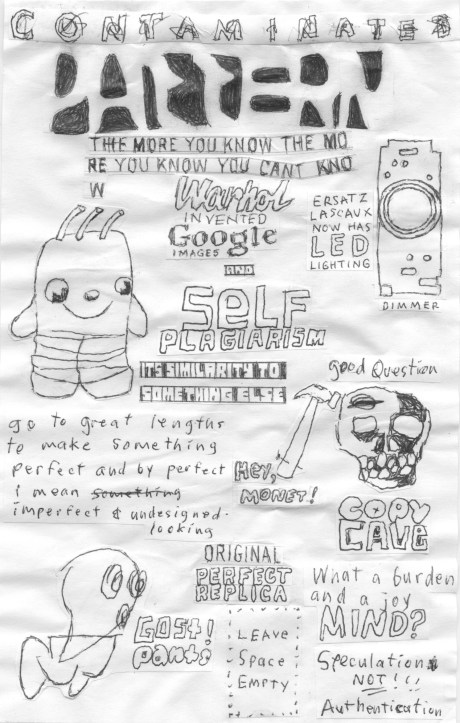 CONTAMINATED
THE MORE YOU KNOW THE MO
RE YOU KNOW YOU CANT KNO
W
Warhol
INVENTED
Google
IMAGES
AND
SELF
PLAGIARISM
ERSATZ
LASCAUX
NOW HAS
LED
LIGHTING
DIMMER
ITS SIMILARITY TO
SOMETHING ELSE
good Question
go to great lengths
to make something
perfect and by perfect
i mean something
imperfect & undesigned-
looking
HEY,
MONET!
COPY
CAVE
ORIGINAL
PERFECT
REPLICA
GOST!
pants
LEAVE
Space
EMPTY
What a burden
and a joy
MIND?
Speculation
NOT!!!
Authentication